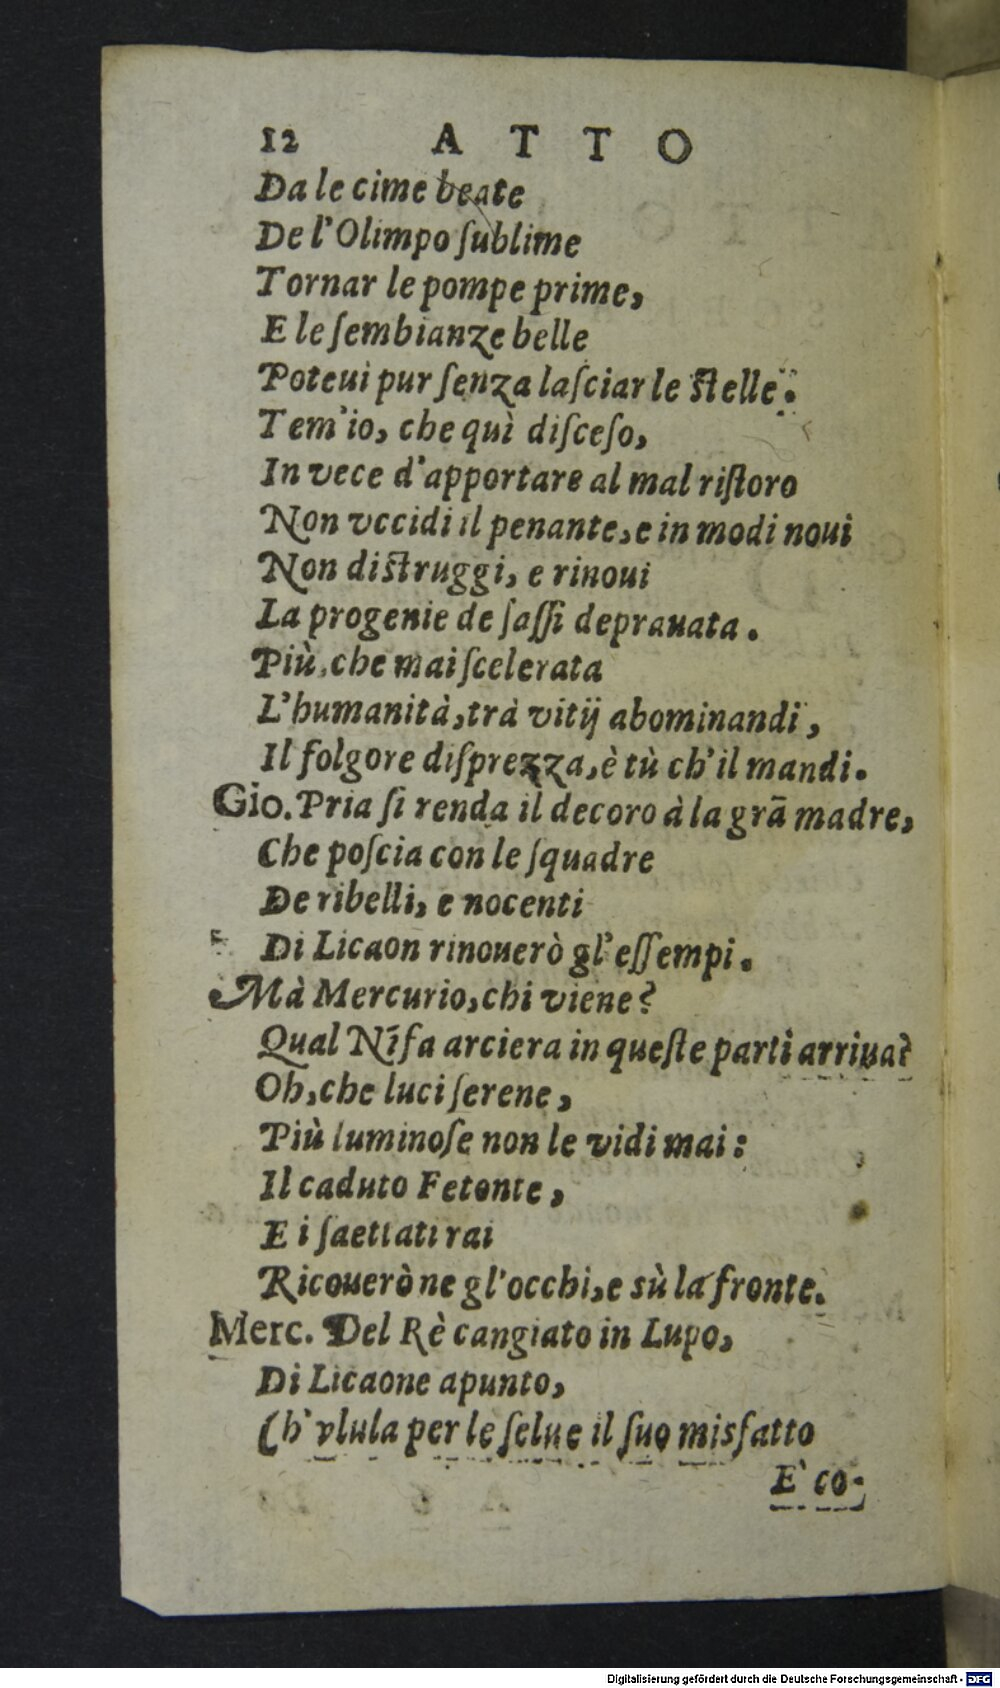 12 ATTO
Da le cime beate
De l'Olimpo ſublime
Tornar le pompe prime,
E le ſembianze belle
Poteui pur ſenza laſciar le ſtelle.
Tem'io, che quì diſceſo,
In vece d'apportare al mal riſtoro
Non vccidi il penante, e in modi noui
Non diſtruggi, e rinoui
La progenie de ſaſſi deprauata.
Più, che mai ſcelerata
L'humanità, trà vitij abominandi,
Il folgore diſprezza, è tù ch'il mandi.
Gio. Pria ſi renda il decoro à la grā madre,
Che poſcia con le ſquadre
De ribelli, e nocenti
Di Licaon rinouerò gl'eſſempi.
Mà Mercurio, chi viene?
Qual Nīfa arciera in queſte parti arriua?
Oh, che luci ſerene,
Più luminoſe non le vidi mai:
Il caduto Fetonte,
E i ſaettati rai
Ricouerò ne gl'occhi, e sù la fronte.
Merc. Del Rè cangiato in Lupo,
Di Licaone apunto,
Ch'vlula per le ſelue il ſuo misfatto
E' co-
Digitalisierung gefördert durch die Deutsche Forschungsgemeinschaft - DFG